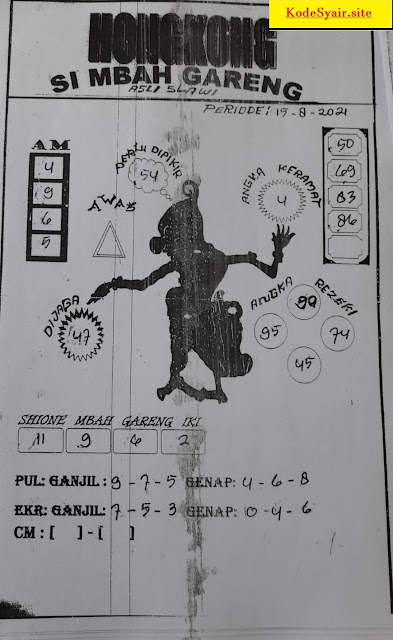 KodeSyair.site
HONGKONG
SI MBAH GARENG
ASLI SLAWI
PERIODE: 19-8-2021
AM
4
9
6
5
PERLU DIPIKIR
54
AWAS
ANGKA KERAMAT
4
50
69
83
86
DIJAGA
47
ANGKA REZEKI
99
95
74
45
SHIONE MBAH GARENG IKI
11 9 6 2
PUL: GANJIL: 9 - 7 - 5 GENAP: 4 - 6 - 8
EKR: GANJIL: 7 - 5 - 3 GENAP: 0 - 4 - 6
CM : [ ] - [ ]